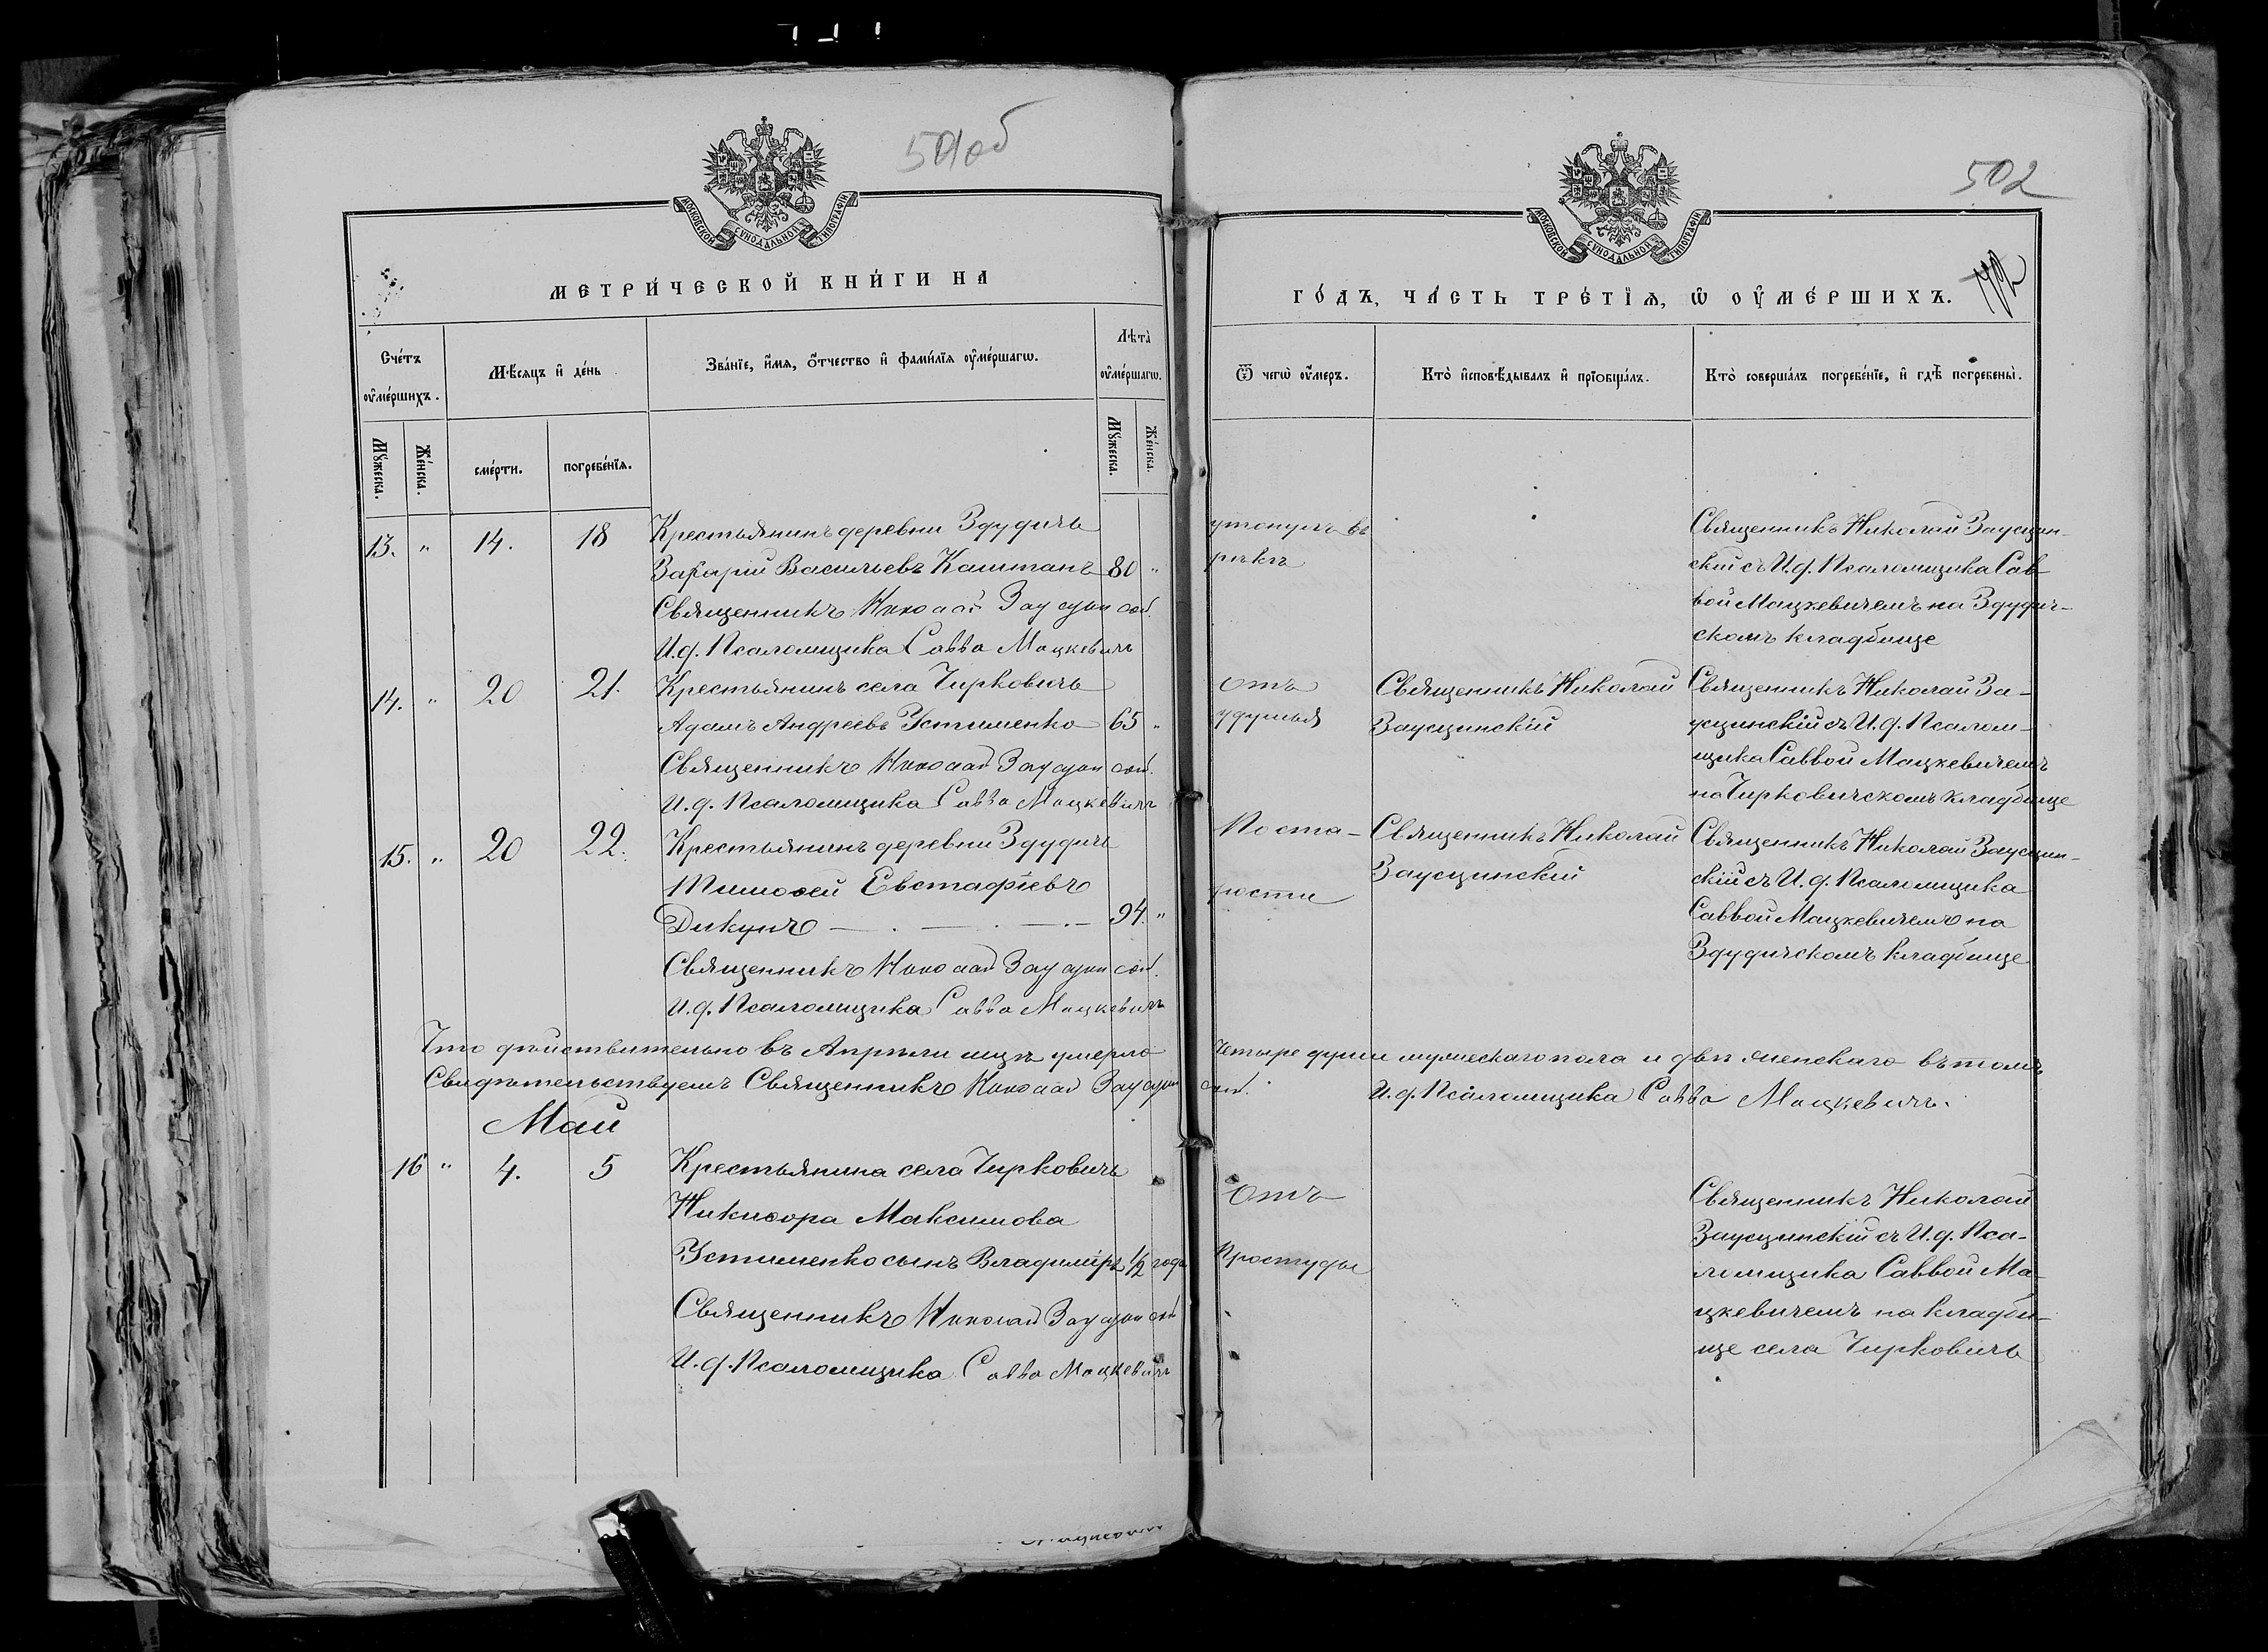 501об
МОСКОВСКОЙ СѴНОДАЛЬНОЙ ТИПОГРАФІИ
МЕТРИ́ЧЕСКОЙ КНИ́ГИ НА
Сче́тъ ᲂу҆ме́ршихъ.
Мѣ́сяцъ и҆ де́нь
Зва́нїе, и҆́мя, ѻ҆́тчество и҆ фами́лїя ᲂу҆ме́ршагѡ.
Лѣта̀ ᲂу҆ме́ршагѡ.
Мꙋ́жеска.
Же́нска.
сме́рти.
погребе́нїѧ.
Мꙋ́жеска.
Же́нска.
13. " 14. 18 Крестьянинъ деревни Здудичъ
Захарій Васильевъ Каштанъ 80 "
Священникъ Николай Заусцинскій.
И. д. Псаломщика Савва Мацкевичъ
14. " 20 21. Крестьянинъ села Чирковичъ
Адамъ Андреевъ Устименко 65 "
Священникъ Николай Заусцинскій.
И. д. Псаломщика Савва Мацкевичъ
15. " 20 22. Крестьянинъ деревни Здудичъ
Тимоѳей Евстафіевъ
Дикунъ 94. "
Священникъ Николай Заусцинскій.
И. д. Псаломщика Савва Мацкевичъ
Что дѣйствительно въ Апрѣли мцѣ умерло
Свидѣтельствуемъ Священникъ Николай Заусцинскій.
Май
16 " 4. 5 Крестьянина села Чирковичъ
Никиѳора Максимова
Устименко сынъ Владиміръ 1/2 года
Священникъ Николай Заусцинскій
И. д. Псаломщика Савва Мацкевичъ
502
МОСКОВСКОЙ СѴНОДАЛЬНОЙ ТИПОГРАФІИ
ГО́ДЪ, ЧА́СТЬ ТРЕ́ТЇѦ, Ѡ҆ ОУ҆МЕ́РШИХЪ.
Ѿ чегѡ̀ ᲂу҆́меръ.
Кто̀ и҆сповѣ́дывалъ и҆ прїобща́лъ.
Кто̀ соверша́лъ погребе́нїе, и҆ гдѣ̀ погребены̀.
утонулъ въ
рѣкѣ
Священникъ Николай Заусцин-
скій съ И. д. Псаломщика Сав-
вой Мацкевичемъ на Здудич-
скомъ кладбище
отъ
удушья
Священникъ Николай
Заусцинскій
Священникъ Николай За-
усцинскій съ И. д. Псалом-
щика Саввой Мацкевичемъ
на Чирковичскомъ кладбище
По ста-
рости
Священникъ Николай
Заусцинскій
Священникъ Николай Заусцин-
скій съ И. д. Псаломщика
Саввой Мацкевичемъ на
Здудичскомъ кладбище
четыре души мужескаго пола и двѣ женскаго въ томъ
И. д. Псаломщика Савва Мацкевичъ.
Отъ
Простуды
Священникъ Николай
Заусцинскій съ И. д. Пса-
ломщика Саввой Ма-
цкевичемъ на кладби-
ще села Чирковичъ